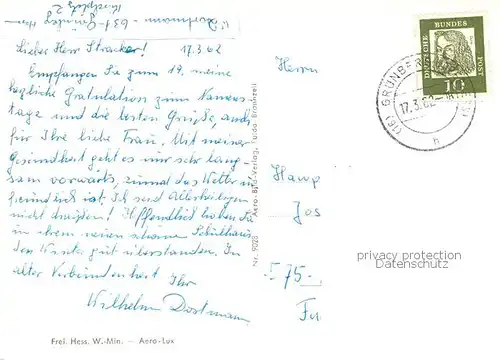 Kirchplatz 2
W. Dortmann - 631 - Grünberg Hess
Lieber Herr Stracker! 17.3.62
Empfangen Sie zum 19. meine
herzliche Gratulation zum Namens-
tage und die besten Grüße, auch
für Ihre liebe Frau. Mit meiner
Gesundheit geht es nur sehr lang-
sam vorwärts, zumal das Wetter un-
freundlich ist. Ich seit Allerheiligen
nicht draußen! Hoffentlich haben Sie
in ihrem neuen schönen Schulhaus
den Winter gut überstanden. In
alter Verbundenheit Ihr
Wilhelm Dortmann
Frei. Hess. W.-Min. — Aero-Lux
Nr. 9028 Aero-Bild-Verlag, Fulda-Bronnzell
DEUTSCHE BUNDES POST
10
(16) GRÜNBERG
17.3.62
h
Herrn
Haup
Jos
575-
Fu
privacy protection
Datenschutz